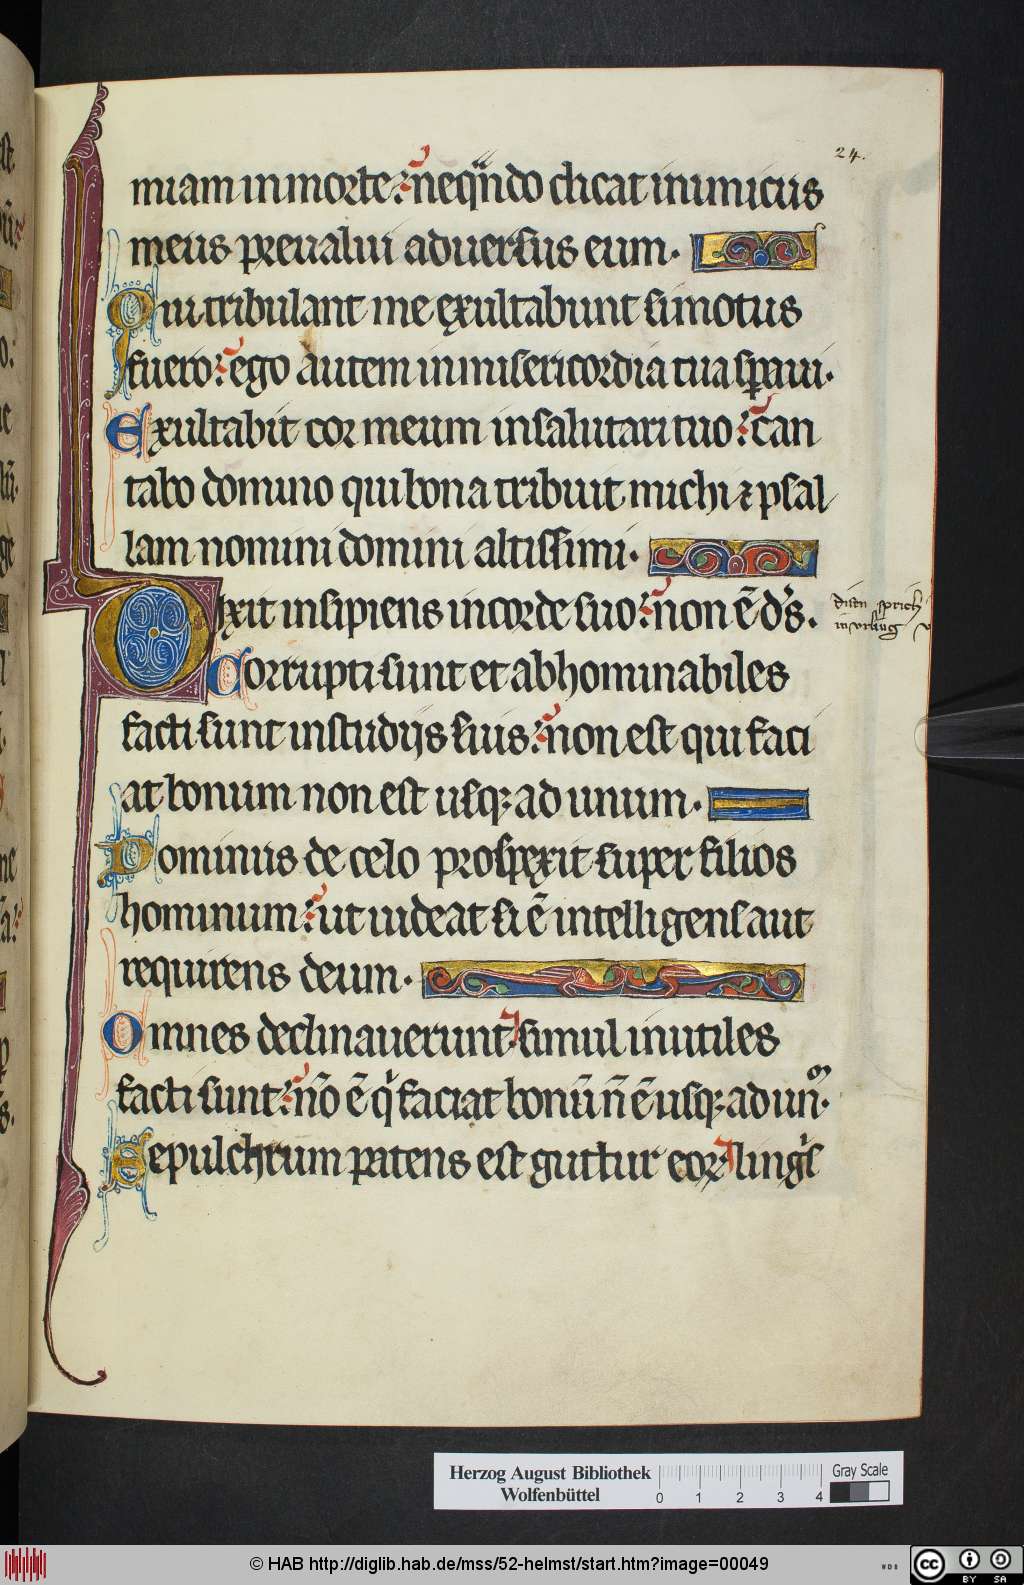 24.
miam in morte: neqn̄do dicat inimicus
meus preualui aduersus eum.
Qui tribulant me exultabunt si motus
fuero: ego autem in misericordia tua sꝑaui.
Exultabit cor meum in salutari tuo: can
tabo domino qui bona tribuit michi ⁊ psal
lam nomini domini altissimi.
Dixit insipiens in corde suo: non ē ds̄.
Corrupti sunt et abhominabiles
facti sunt in studijs suis: non est qui faci
at bonum non est usqꝫ ad unum.
Dominus de celo prospexit super filios
hominum: ut uideat si ē intelligens aut
requirens deum.
Omnes declinauerunt simul inutiles
facti sunt: nō ē qͥ faciat bonū n̄ ē usqꝫ ad unͫ.
Sepulchrum patens est guttur eoꝝ ling̾s
disen sprich
in
Herzog August Bibliothek
Wolfenbüttel
0 1 2 3 4
Gray Scale
© HAB http://diglib.hab.de/mss/52-helmst/start.htm?image=00049
WDB
cc
BY SA